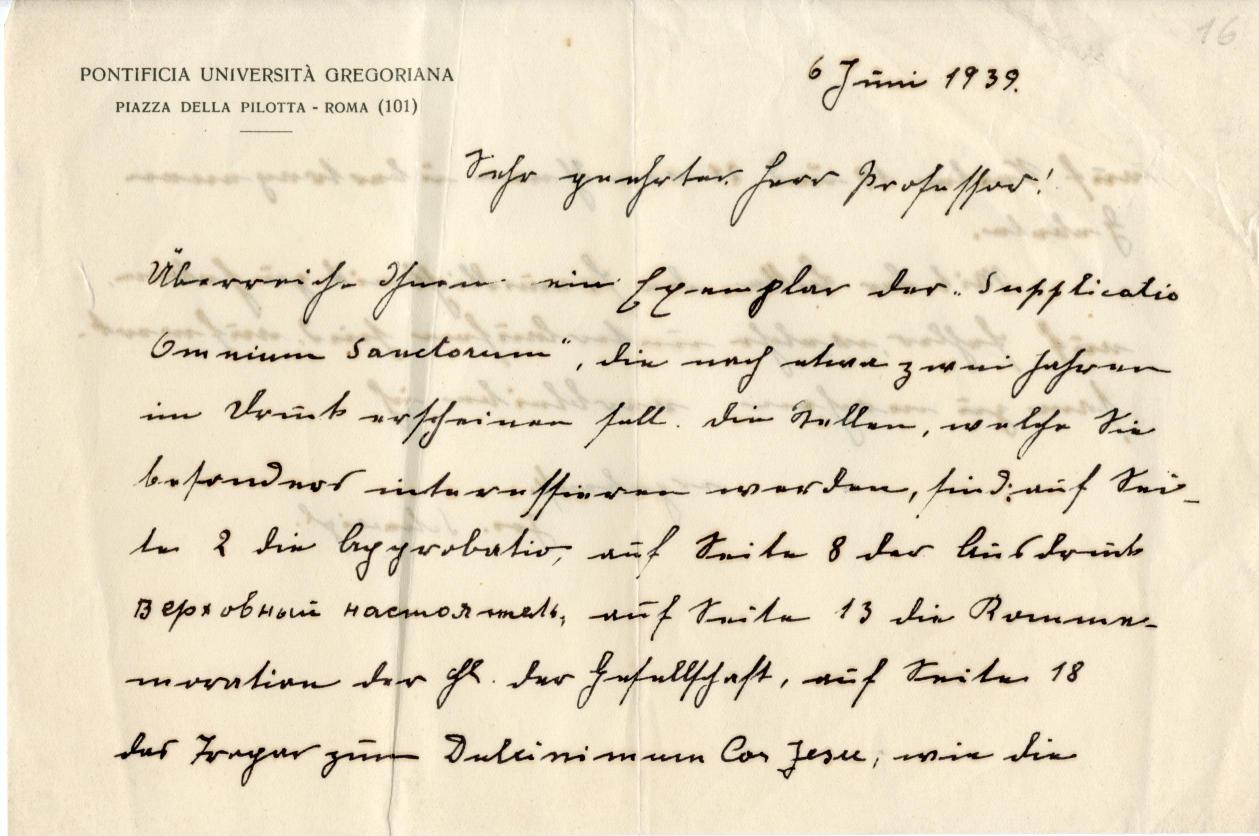 16
PONTIFICIA UNIVERSITÀ GREGORIANA
PIAZZA DELLA PILOTTA - ROMA (101)
6 Juni 1939.
Sehr geehrter Herr Professor!
Überreiche Ihnen ein Exemplar der „Supplicatio
Omnium Sanctorum“, die nach etwa zwei Jahren
im Druck erscheinen soll. Die Stellen, welche Sie
besonders interessieren werden, sind: auf Sei-
te 2 die Approbatio, auf Seite 8 der Ausdruck
Верховный настоятель, auf Seite 13 die Komme-
moration der Hl. der Gesellschaft, auf Seite 18
das Tropar zum Dulcissimum Cor Jesu, wie die